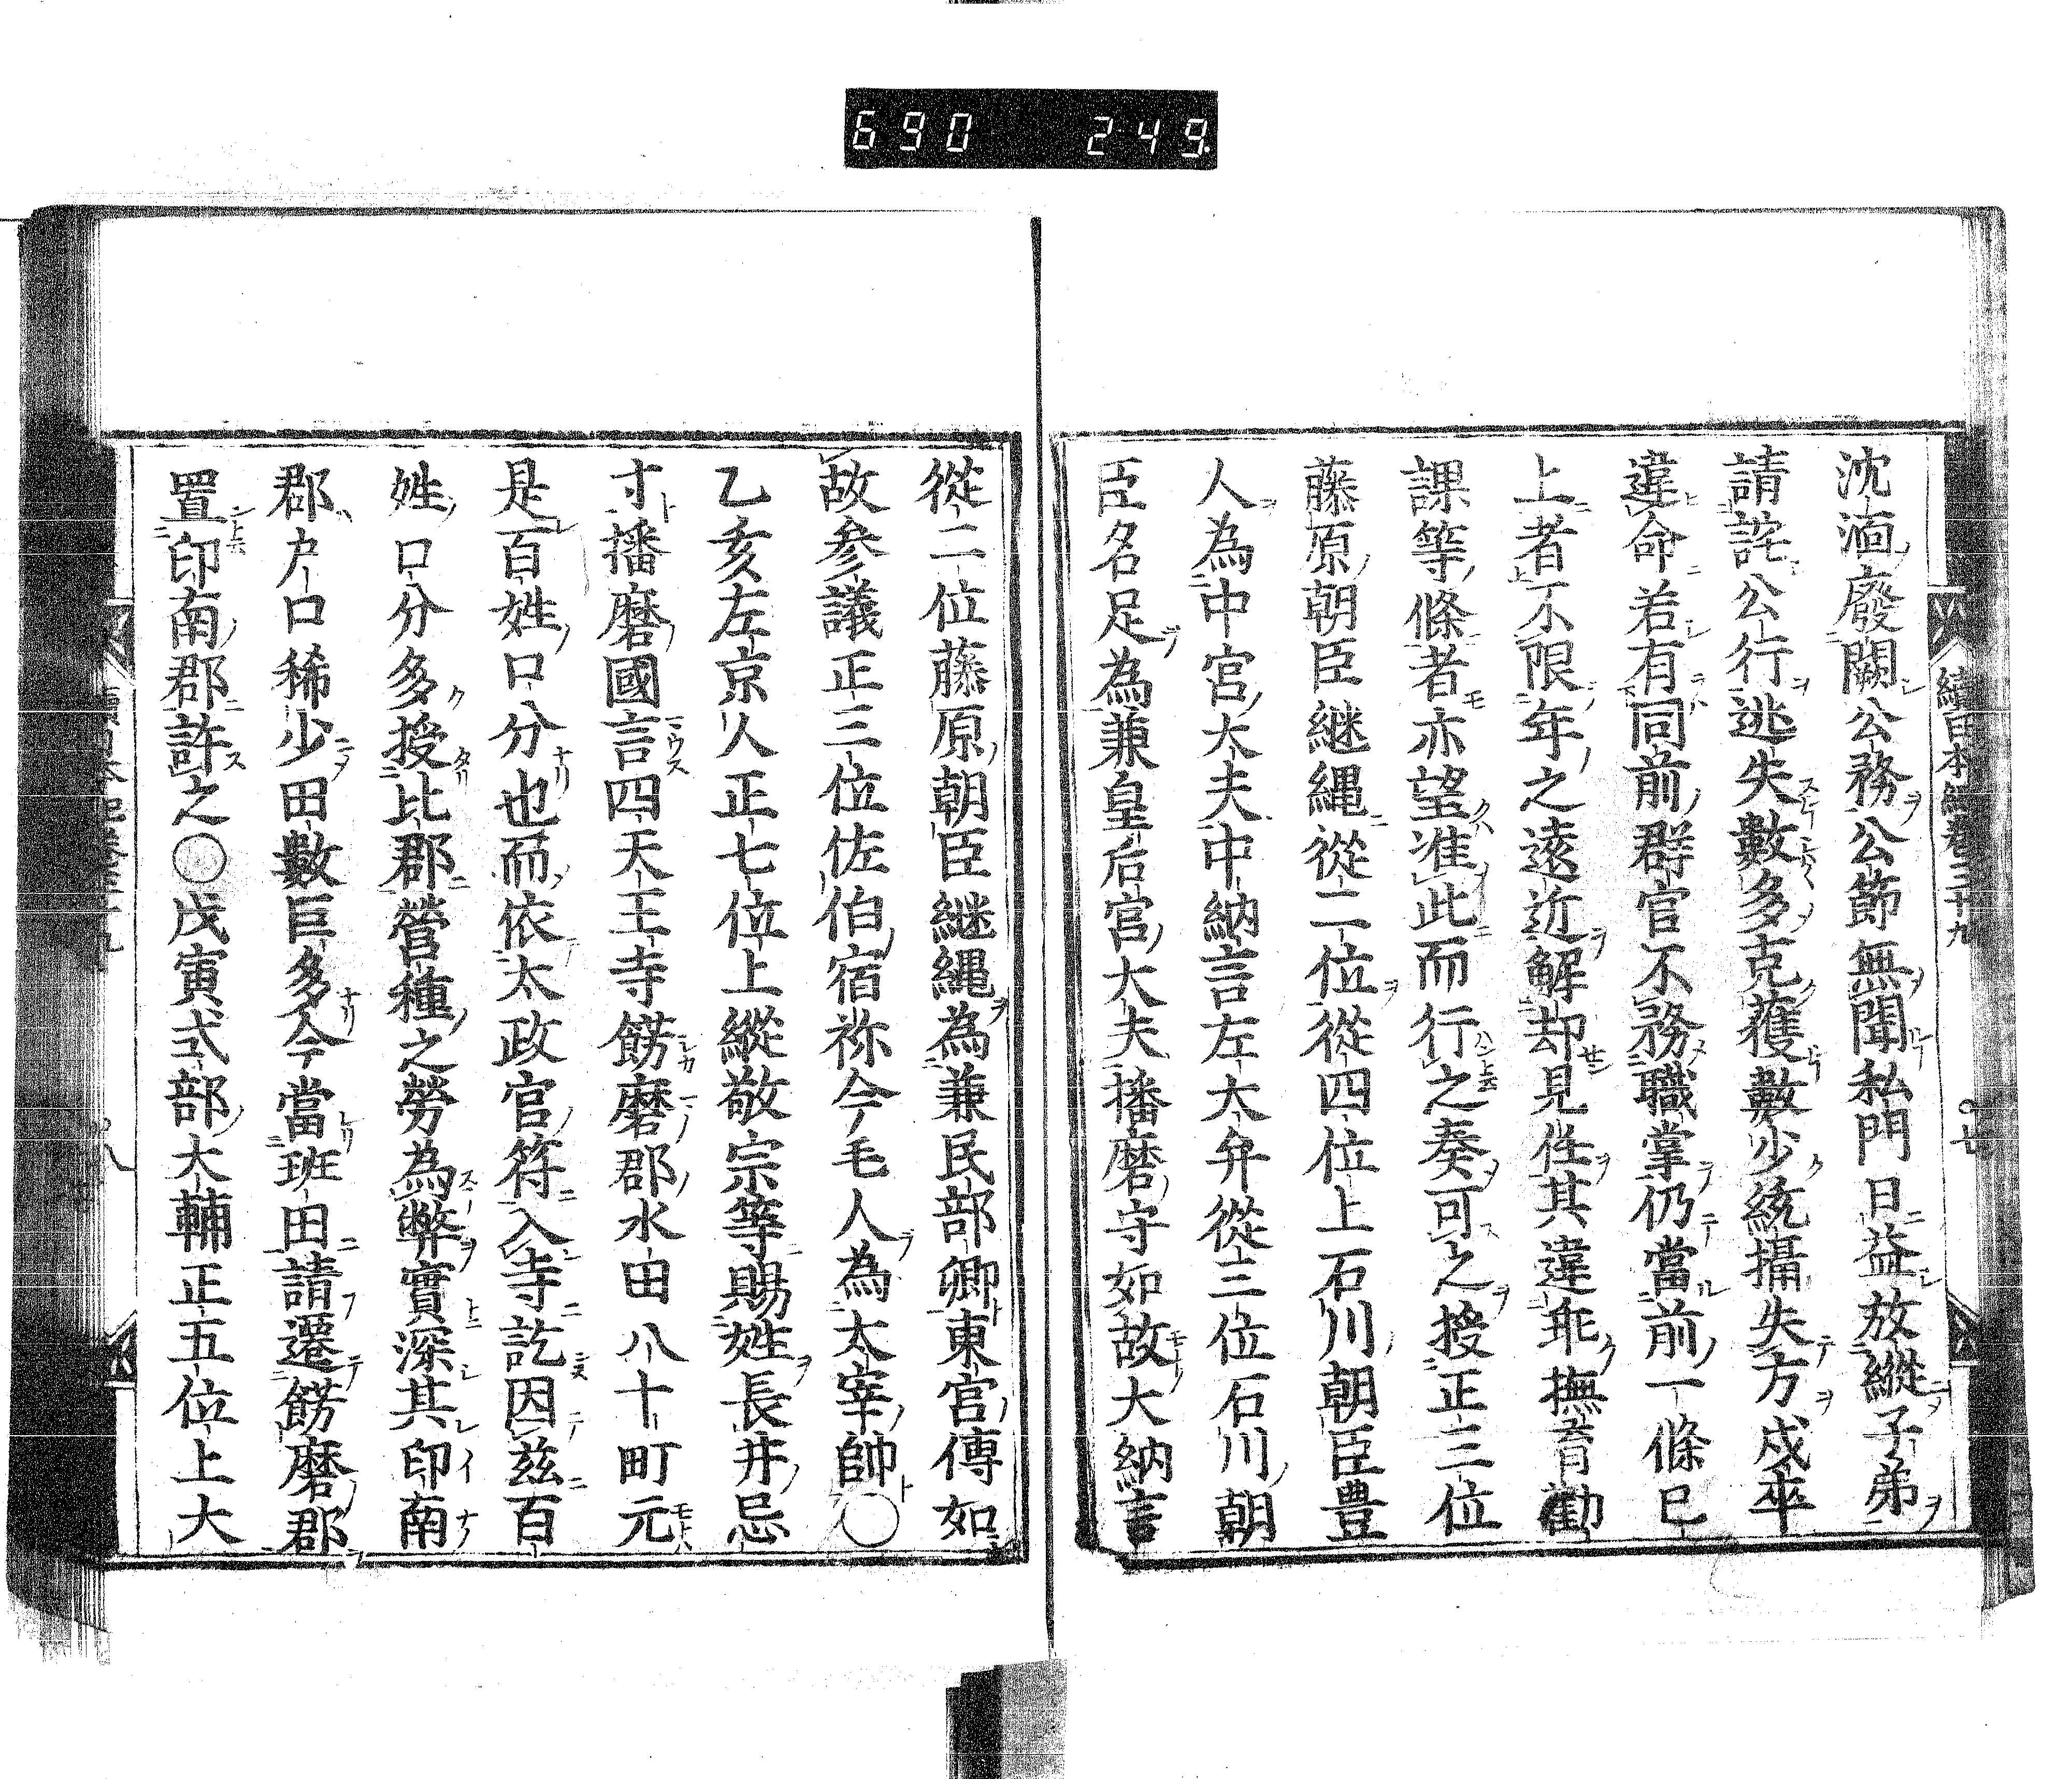 690 249
續日本紀卷三十九
沈湎廢闕公務公節無聞私門日益放縱子弟
請託公行逃失數多克獲數少統攝失方戍卒
違命若有同前群官不務職掌仍當前一條已
上者不限年之遠近解却見任其違乖撫育勸
課等條者亦望准此而行之奏可之授正三位
藤原朝臣継縄從二位從四位上石川朝臣豊
人為中宮大夫中納言左大弁從三位石川朝
臣名足為兼皇后宮大夫播磨守如故大納言
從二位藤原朝臣継縄為兼民部卿東宮傳如
故参議正三位佐伯宿祢今毛人為太宰帥○
乙亥左京人正七位上縱敬宗等賜姓長井忌
寸播磨國言四天王寺餝磨郡水田八十町元
是百姓口分也而依太政官符入寺訖因茲百
姓口分多授比郡營種之勞為弊實深其印南
郡戸口稀少田數巨多今當班田請遷餝磨郡
置印南郡許之○戊寅式部大輔正五位上大